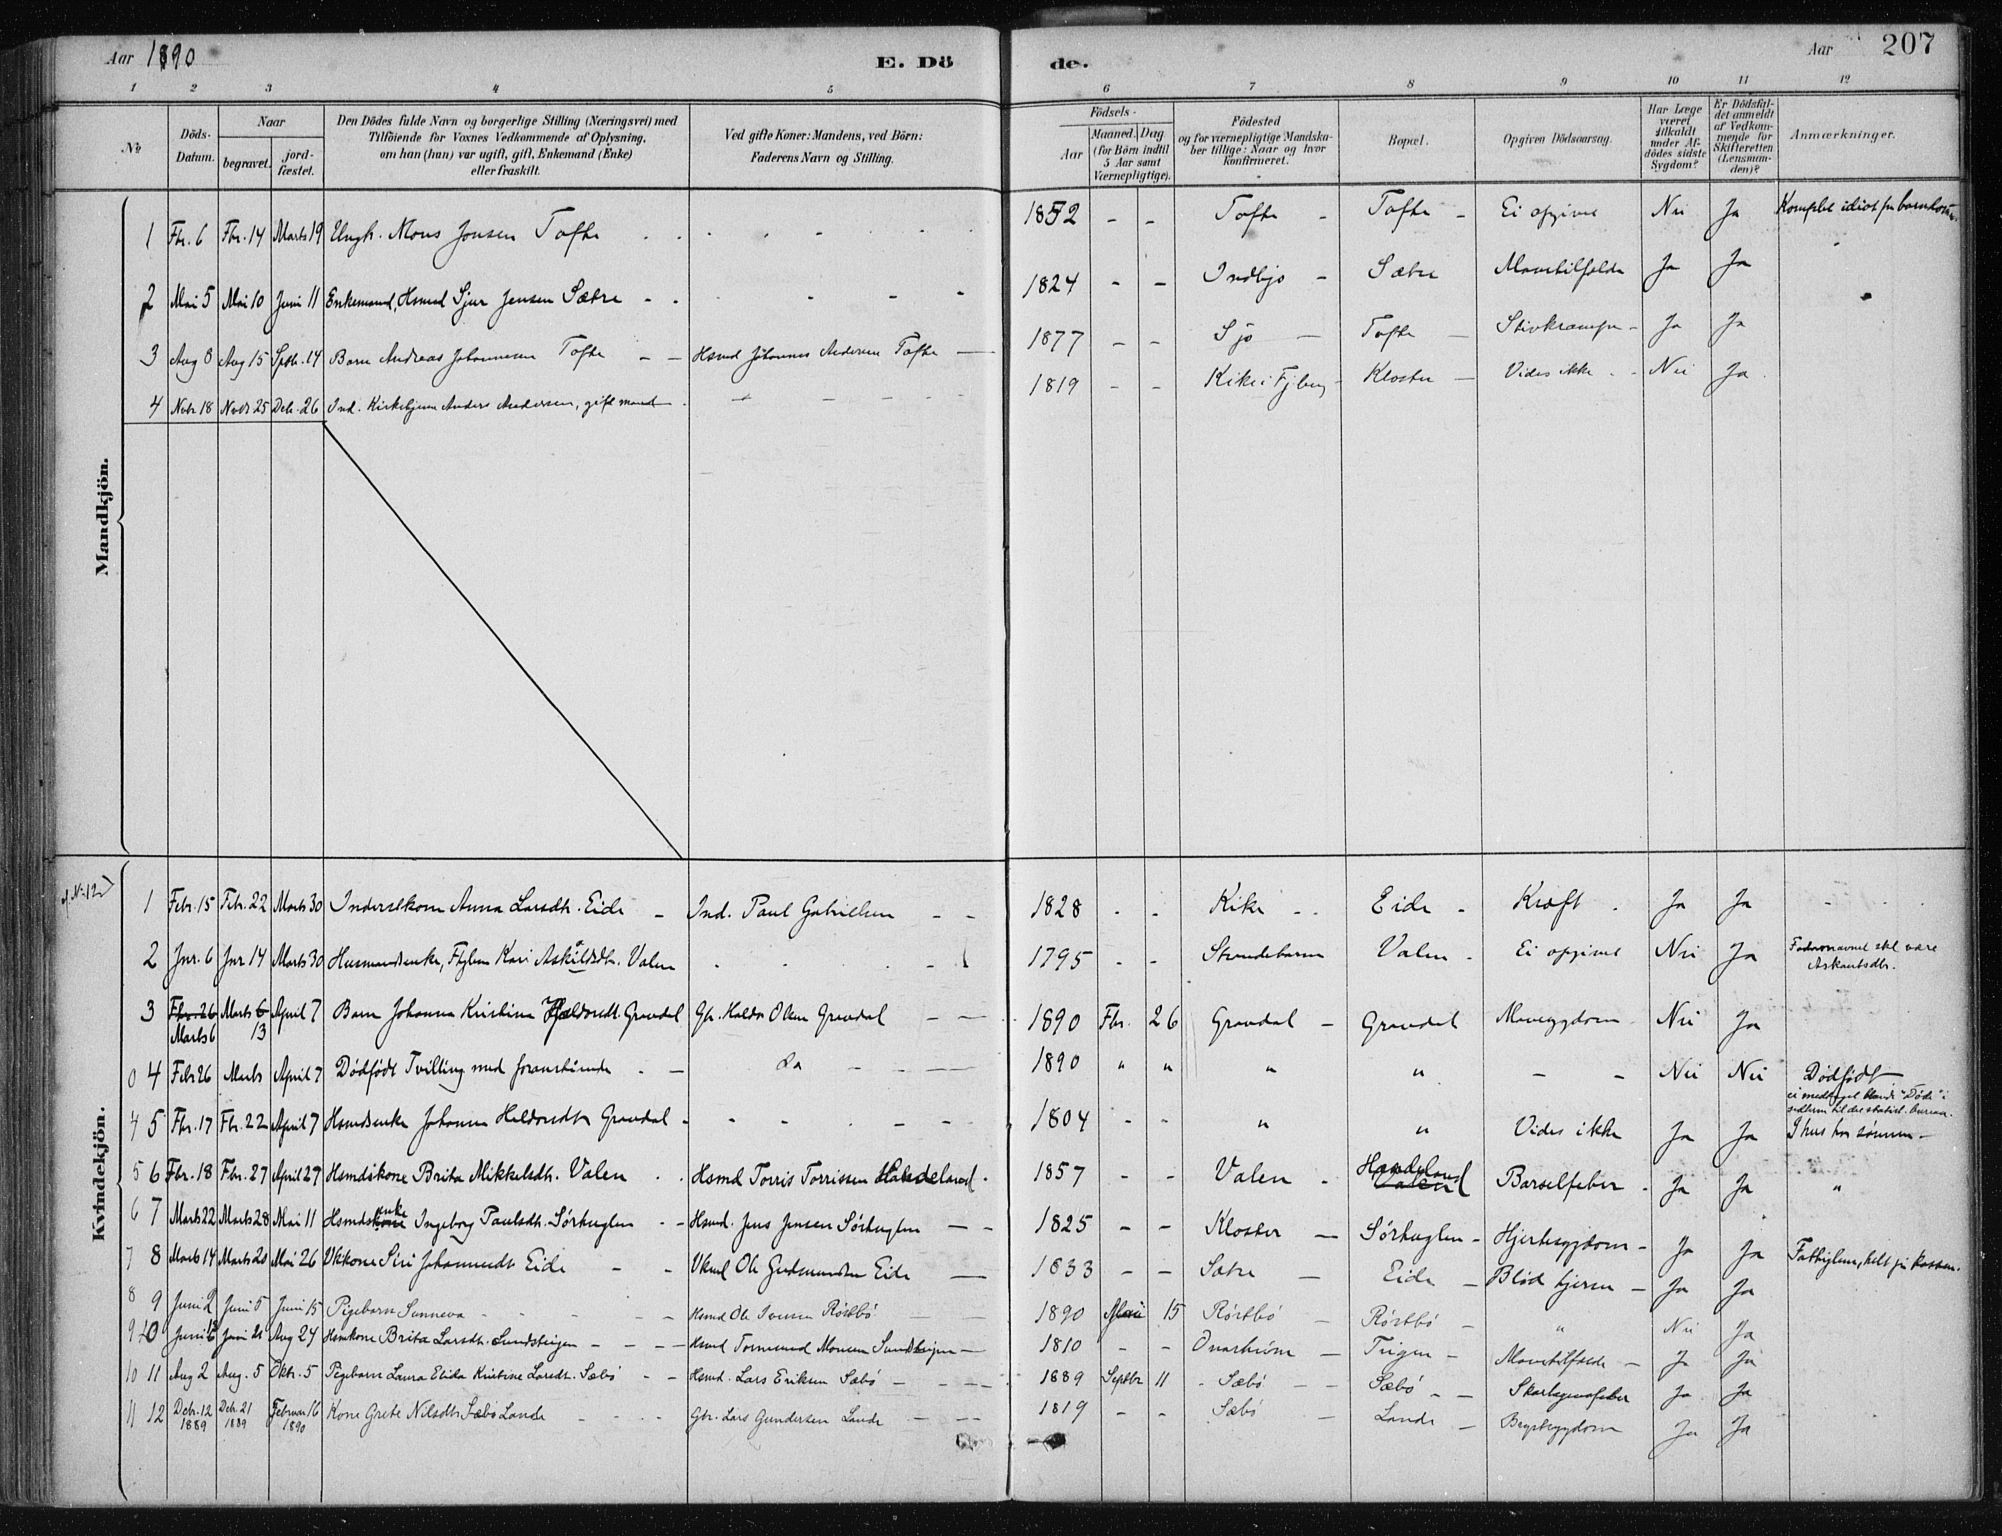 Aar 1890 E. Dö de. Aar 207
1 2 3 4 5 6 7 8 9 10 11 12
No. Döds-Datum. Naar begravet. jord-fæstet. Den Dödes fulde Navn og borgerlige Stilling (Næringsvei) med Tilföiende for Voxnes Vedkommende af Oplysning, om han (hun) var ugift, gift, Enkemand (Enke) eller fraskilt. Ved gifte Koner: Mandens, ved Börn: Faderens Navn og Stilling. Födsels- Aar Maaned. Dag (for Börn indtil 5 Aar samt Værnepligtige). Födested og for værnepligtige Mandskaber tillige: Naar og hvor konfirmeret. Bopæl. Opgiven Dödsaarsag. Har Læge været tilkaldt under Afdödes sidste Sygdom? Er Dödsfaldet anmeldt af Vedkommende for Skifteretten (Lensmanden)? Anmærkninger.
Mandkjön.
1 Fbr. 6 Fbr. 14 Marts 19 Ungk. Mons Jonsen Tofte 1852 - - Tofte - Tofte - Ei opgivet Nei Ja Komplet idiot fra barndommen
2 Mai 5 Mai 10 Juni 11 Enkemand, Hsmd Sjur Jensen Sætre - - 1824 - - Indbjo - Sætre Mavetilfælde Ja Ja
3 Aug 8 Aug 15 Septb. 14 Barn Andreas Johannesen Tofte - - Hsmd Johannes Andersen Tofte - 1877 - - Sjo - Tofte - Stivkrampe - Ja Ja
4 Novbr 18 Novbr 25 Debr. 26 Ind. Kirketjener Anders Andersen, gift mand 1819 - - Kike i Fjberg - Kloster - Vides ikke Nei Ja
Kvindekjön.
1 Febr. 15 Febr. 22 Marts 30 Inderstkone Anna Larsdtr. Eide - Ind. Paul Gabrielsen - - 1828 - - Kike - Eide - Kræft Ja Ja
2 Jnr. 6 Jnr 14 Marts 30 Husmandsenke, Ftglem Kari Askildsdtr. Valen 1795 - - Strandebarm Valen - Ei opgivet Nei Ja Fadernavnet skl være
Askautsdtr.
3 Fbr. 26 Marts 6 April 7 Barn Johanna Kristina Haldorsdt. Gravdal Gbr. Haldor Olsen Gravdal - - 1890 Fbr. 26 Gravdal - Gravdal Mavesygdom Nei Ja
Marts 6 13
0 4 Febr 26 Marts April 7 Dødfødt Tvilling med foranstående - da - - 1890 " " " " - - Nei Nei Dødfødt
ei medtaget blandt "Døde" i
sedlerne til det statist. bureau.
4 5 Fbr. 17 Fbr. 22 April 7 Hsmdsenke Johanna Haldorsdt Gravdal - 1804 - - " " Vides ikke Ja Ja I hus hos sønnen -
5 6 Fbr. 18 Fbr. 27 April 27 Hsmdskone Brita Mikkelsdtr. Valen Hsmd Torris Torrissen Handeland. 1857 - - Valen - Handeland Valen Barselfeber - Ja Ja "
6 7 Marts 22 Marts 28 Mai 11 Hsmdskone enke Ingeborg Paulsdtr. Sørhuglen - - Hsmd. Jens Jensen Sørhuglen - - 1825 - - Kloster - Sørhuglen - Hjertesygdom - Ja Ja
7 8 Marts 14 Marts 20 Mai 26 Vkkone Siri Johannesdt Eide - - Vkmd Ole Gudmundsen Eide - 1833 - - Sætre - Eide - Blød hjerne - Ja Ja
8 9 Juni 2 Juni 5 Juni 15 Pigebarn Sunneva - Hsmd Ole Iversen Røstbø 1890 Mai 15 Røstbø - Røstbø - " Nei Ja
9 10 Juni 16 Juni 21 Aug 24 Hsmkone Brita Larsdtr. - - - Hsmd Tormund Monsen - 1810 - - - - Mavetilfælde - Ja Ja
10 11 Aug 2 Aug. 5 Oktr. 5 Pigebarn Laura Elida Kristine Larsdt. Sæbø - - Hsmd. Lars Eriksen Sæbø - - 1889 Septbr 11 - Sæbø - - Sæbø - - Skarlagensfeber Ja Ja
11 12 Debr. 12 1889 Debr. 21 1889 Februar 16 1890 Kone Grete Nilsdtr. Sæbø Lande Gbr. Lars Gundersen Lande - - 1819 - - Sæbø - Lande - Brystsygdom Ja Ja